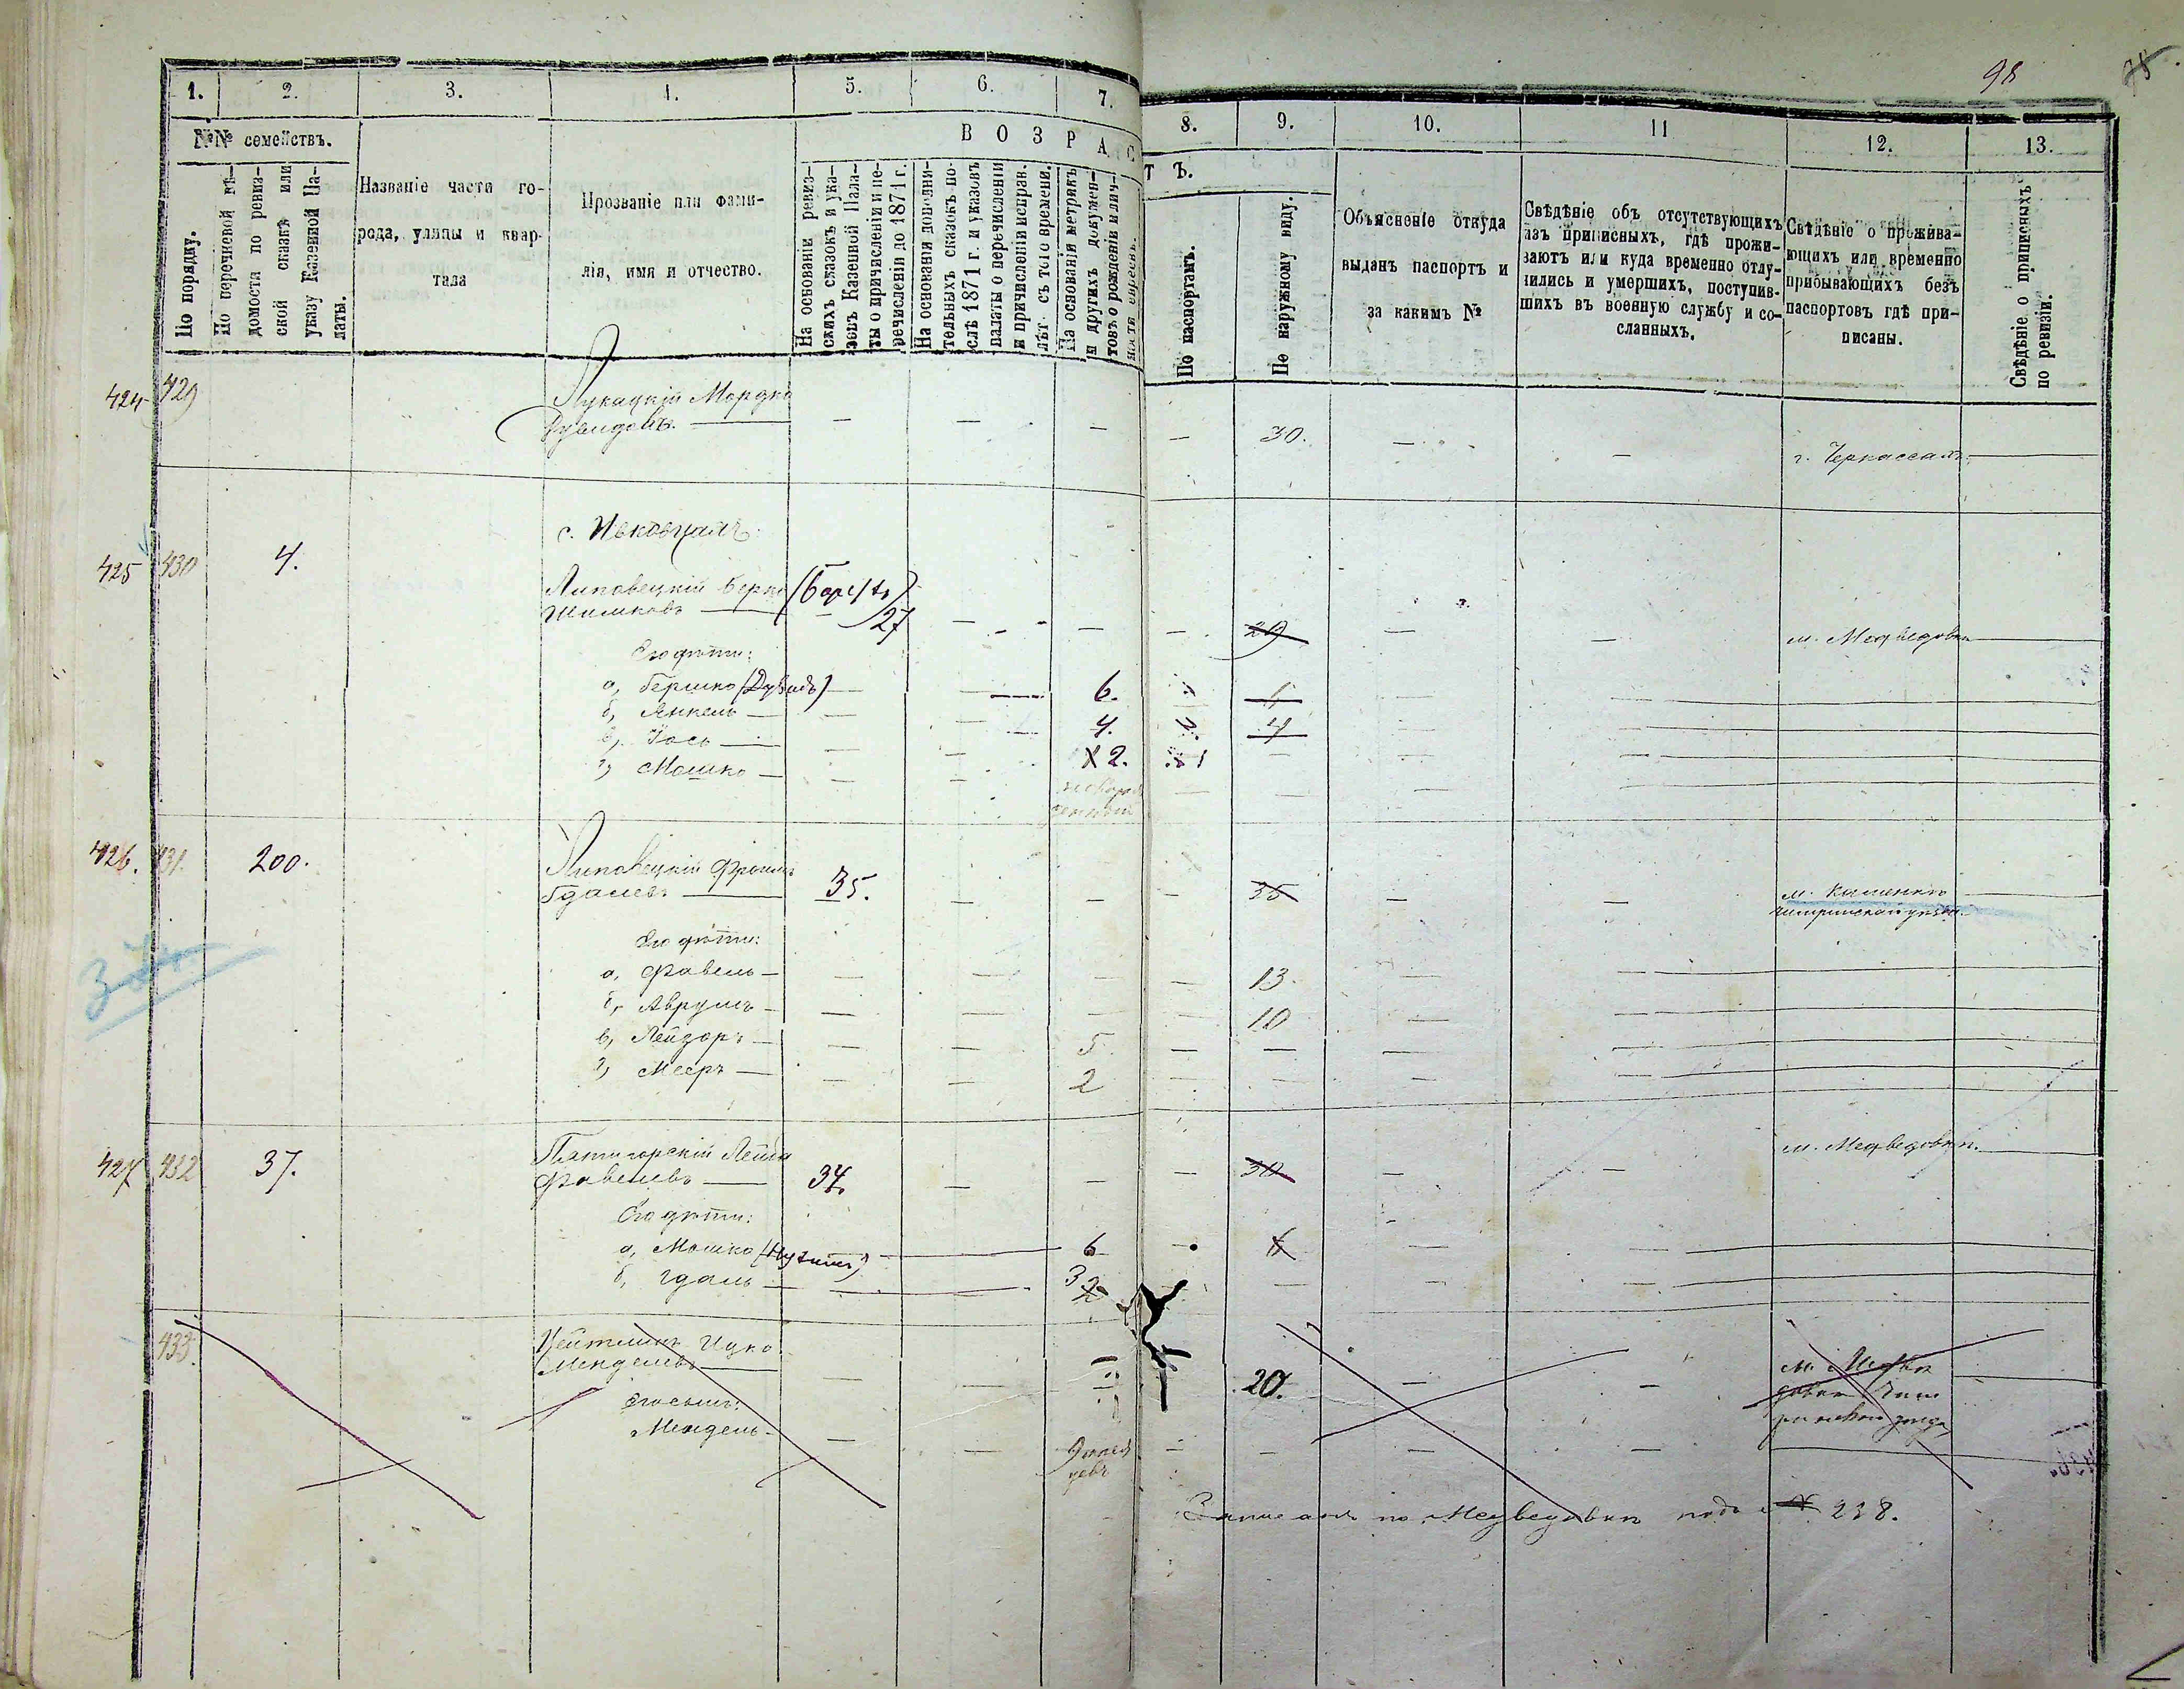 98
1. 2. 3. 4. 5. 6. 7. 8. 9. 10. 11 12. 13.
№№ семействъ.
По порядку.
По перечневой вѣ-
домости по ревиз-
ской сказкѣ или
указу Казенной Па-
латы.
Названіе части го-
рода, улицы и квар-
тала
Прозваніе или фами-
лія, имя и отчество.
В О З Р А С Т Ъ.
На основаніи ревиз-
скихъ сказокъ и ука-
зовъ Казенной Пала-
ты о причисленіи и пе-
речисленіи до 1871 г.
На основаніи дополни-
тельныхъ сказокъ по-
слѣ 1871 г. и указовъ
палаты о перечисленіи
и причисленіи исправ.
лѣт. съ того времени.
На основаніи метрикъ
и другихъ докумен-
товъ о рожденіи и лич-
По паспортамъ.
По наружному виду.
Объясненіе откуда
выданъ паспортъ и
за какимъ №
Свѣдѣніе объ отсутствующихъ
изъ приписныхъ, гдѣ прожи-
ваютъ или куда временно отлу-
чились и умершихъ, поступив-
шихъ въ военную службу и со-
сланныхъ.
Свѣдѣніе о прожива-
ющихъ или временно
прибывающихъ безъ
паспортовъ гдѣ при-
писаны.
Свѣдѣніе о приписныхъ
по ревизіи.
424 429 Лукацкій Мордко
Дувидовъ. — — — — — 30. — — г. Черкассахъ
с. Ивковцахъ
425 430 4.
Липовецкій Берко
Шимковъ — 27 — — — 29 — — м. Медведовки
Его дѣти:
а, Гершко (Дувидъ) — — 6.
б, Янкель — — — 4. 4
в, Іось — — — 2. 1
г, Мошко — — —
426. 431. 200. Липовецкій Фроимъ
Гдалевъ — 35. — — — 35 — — м. Каменки
чигиринскаго уѣзда.
Его дѣти:
а, Фавель — — — — — 13.
б, Аврумъ — — 10
в, Лейзоръ — — — 5. — — —
г, Мееръ — — — 2
427 432 37. Пятигорскій Лейба
Фавелевъ — 34. — — — 30 — — м. Медведовки.
Его дѣти:
а, Мошко (Нухимъ) — 6
б, Гдаль — 3
433. Цейтлинъ Ицко
Менделевъ — — — 20. — —
Его сынъ:
Мендель — — —
Записанъ по Медведовкѣ подъ № 238.